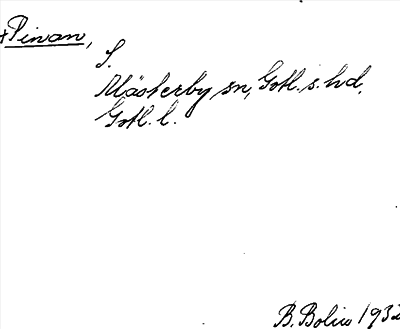 +Pinan,
S.
Mästerby sn, Gotl. s. hd.
Gotl. l.
B. Bolin 1932